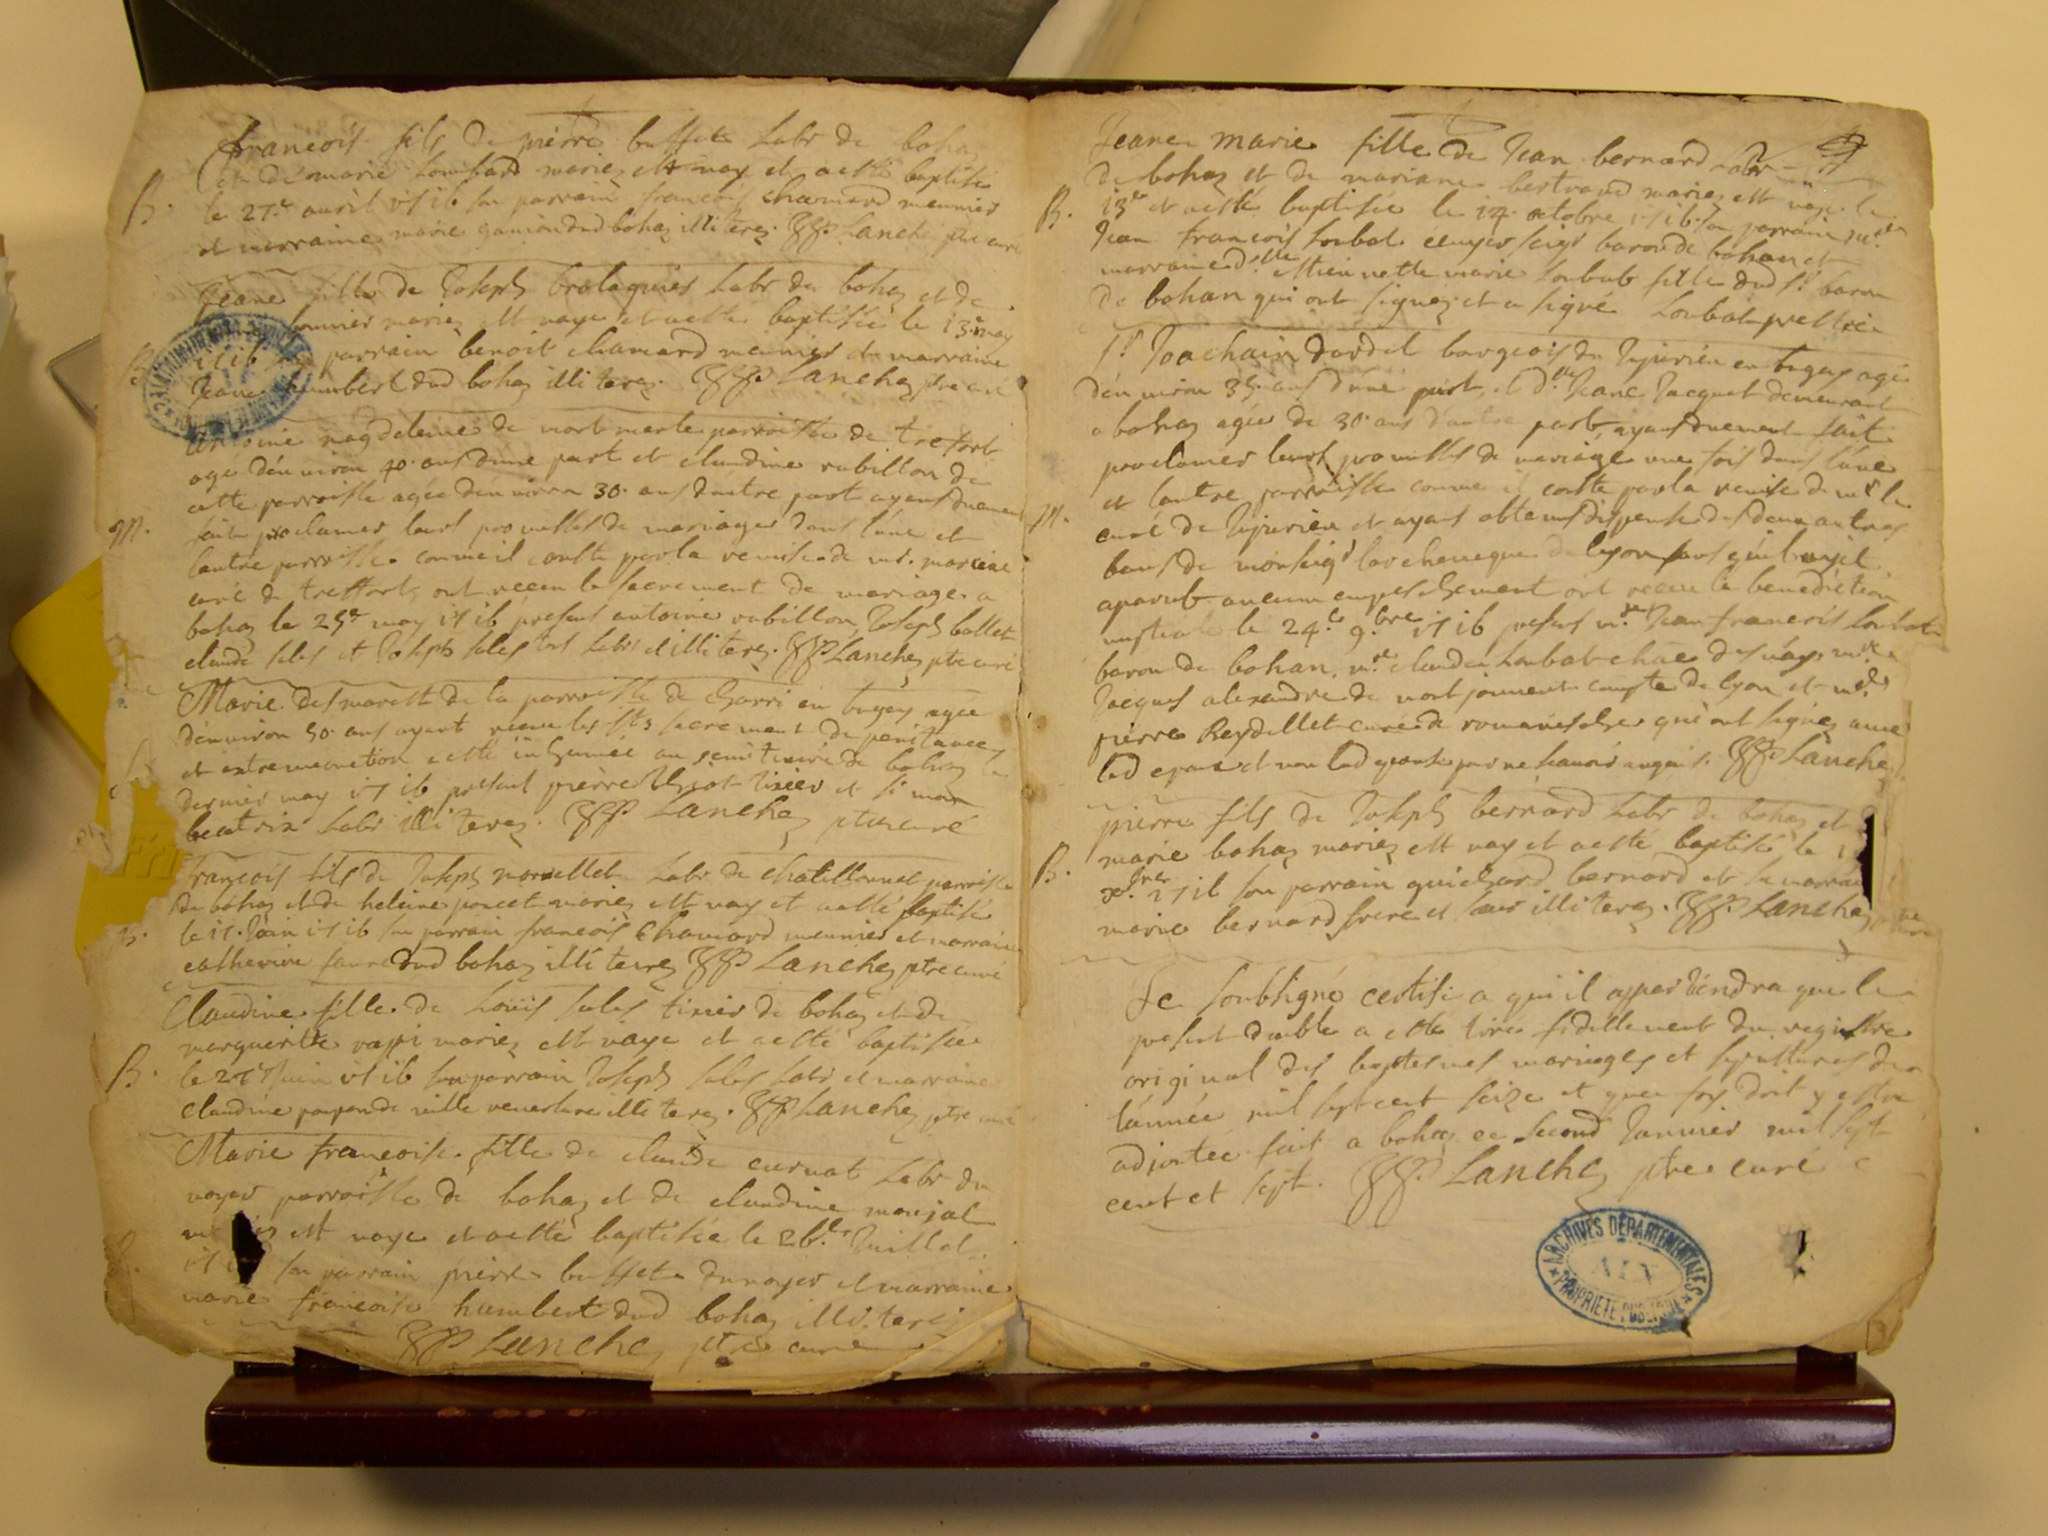 francois fils de pierre buffet labr de bohas
et de marie lombard mariez est nay et a esté baptisé
B.
le 27e avril 1716 son parrain francois chanard meunier
et marraine marie dud bohaz illiterez. Lanchez ptre curé
Jeane fille de Joseph brolaquier labr de bohaz et de
mariez est naye et a esté baptisée le 13e may
1716 parrain benoit chanard meunier et marraine
Jeane humbert dud bohaz illiterez. Lanchez ptre curé
Antoine magdeleine de mortmerle parroisse de trefort
agé d'environ 40 ans d'une part et claudine rubillon de
cette parroisse agée d'environ 30 ans d'autre part ayans duement
M.
fait proclamer leurs promesses de mariage dans l'une et
l'autre parroisse comme il conste par la remise de mr.
curé de treffort, ont receu le sacrement de mariage a
bohaz le 25e may 1716 presens antoine rubillon, Joseph ballet
claude sales et Joseph sales tous labrs et illiterez. Lanchez ptre curé
Marie desmarest de la parroisse de en bugey agée
d'environ 50 ans ayant receu les sts sacrement de penitance
et extremeonction a esté inhumée au semitiere de bohaz le
dernier may 1716 present pierre tixier et
beatrix labr illiterez. Lanchez ptre curé
francois fils de Joseph morellet labr de chatillonnet parroisse
de bohaz et de heleine poncet mariez est nay et a esté baptisé
B.
le 17 Juin 1716 son parrain francois chanard meunier et marraine
catherine faure dud bohaz illiterez Lanchez ptre curé
Claudine fille de Loüis sales tixier de bohaz et de
marguerite mariez est naye et a esté baptisée
B.
le Juin 1716 son parrain Joseph sales labr et marraine
claudine de ville reversure illiterez. Lanchez ptre curé
Marie francoise fille de claude curnat labr du
noyer parroisse de bohaz et de claudine monjal
est naye et a esté baptisée le 26e Juillet
son parrain pierre buffet du noyer et marraine
marie francoise humbert dud bohaz illiterez
Lanchez ptre curé
Jeane marie fille de Jean bernard labr
de bohaz et de mariane bertrand mariez est naye le
B.
13e et a esté baptisée le 14 octobre 1716 son parrain
Jean francois Loubat écuyer seigr baron de bohan et
marraine dlle ettiennette marie Loubat fille dud sr baron
de bohan qui ont signez et a signé Loubat prestre
Sr Joachain dardel bourgeois de Jujurieu en bugey agé
d'environ 35 ans d'une part, et dlle Jeane Jacquet demeurant
a bohaz agée de 30 ans d'autre part, ayans duement fait
proclamer leurs promesses de mariage une fois dans l'une
et l'autre parroisse comme il conste par la remise de mr le
M.
curé de Jujurieu et ayans obtenus dispense des deux autres
bans de monseigr l'archeveque de lyon sans qu'il ayt
aparut aucun empeschement ont receu la benediction
nuptiale le 24e 9bre 1716 presens Jean francois Loubat
baron de bohan, claude Loubat
Jacques alexandre de montjouvent compte de lyon et
pierre Reydellet curé de romanesche qui ont signez avec
led epoux et non lad epouse pour ne sçavoir enquis. Lanchez
pierre fils de Joseph bernard labr de bohaz et
marie bohaz mariez est nay et a esté baptisé le
B.
xbre 1716 son parrain guichard bernard et sa marraine
marie bernard frere et soeur illiterez. Lanchez
Je soubsigné certifie a qui il appartiendra que le
present double a esté tiré fidellement du registre
original des baptesmes mariages et sepultures de
l'année mil sept cent seize et que foy doit y estre
adjoutée fait a bohaz ce second Janvier mil sept
cent et sept. Lanchez ptre curé
ARCHIVES DÉPARTEMENTALES
AIN
PROPRIÉTÉ PUBLIQUE